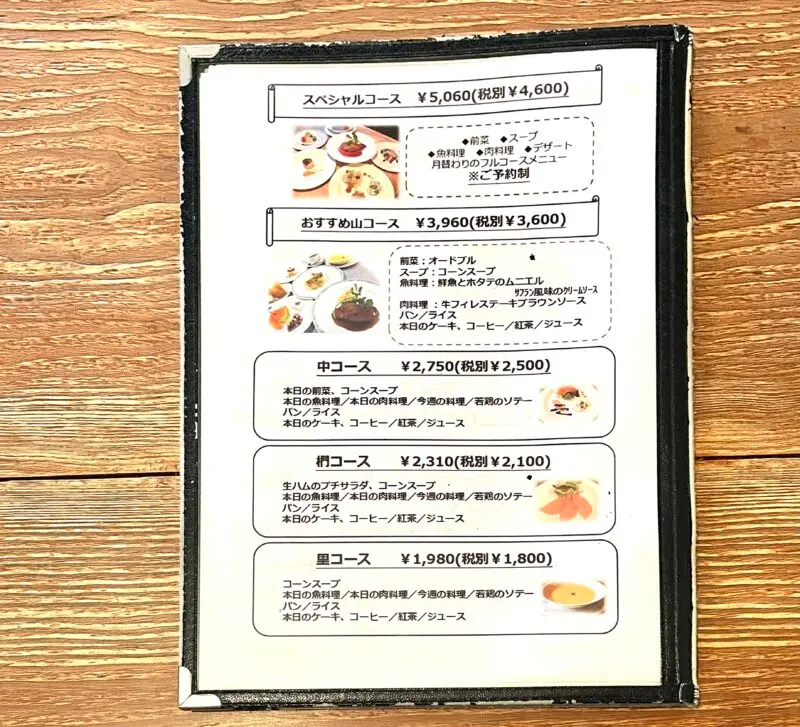 スペシャルコース ￥5,060(税別￥4,600)
◆前菜 ◆スープ
◆魚料理 ◆肉料理 ◆デザート
月替わりのフルコースメニュー
※ご予約制
おすすめ山コース ￥3,960(税別￥3,600)
前菜：オードブル
スープ：コーンスープ
魚料理：鮮魚とホタテのムニエル
サフラン風味のクリームソース
肉料理：牛フィレステーキブラウンソース
パン／ライス
本日のケーキ、コーヒー／紅茶／ジュース
中コース ￥2,750(税別￥2,500)
本日の前菜、コーンスープ
本日の魚料理／本日の肉料理／今週の料理／若鶏のソテー
パン／ライス
本日のケーキ、コーヒー／紅茶／ジュース
椚コース ￥2,310(税別￥2,100)
生ハムのプチサラダ、コーンスープ
本日の魚料理／本日の肉料理／今週の料理／若鶏のソテー
パン／ライス
本日のケーキ、コーヒー／紅茶／ジュース
里コース ￥1,980(税別￥1,800)
コーンスープ
本日の魚料理／本日の肉料理／今週の料理／若鶏のソテー
パン／ライス
本日のケーキ、コーヒー／紅茶／ジュース